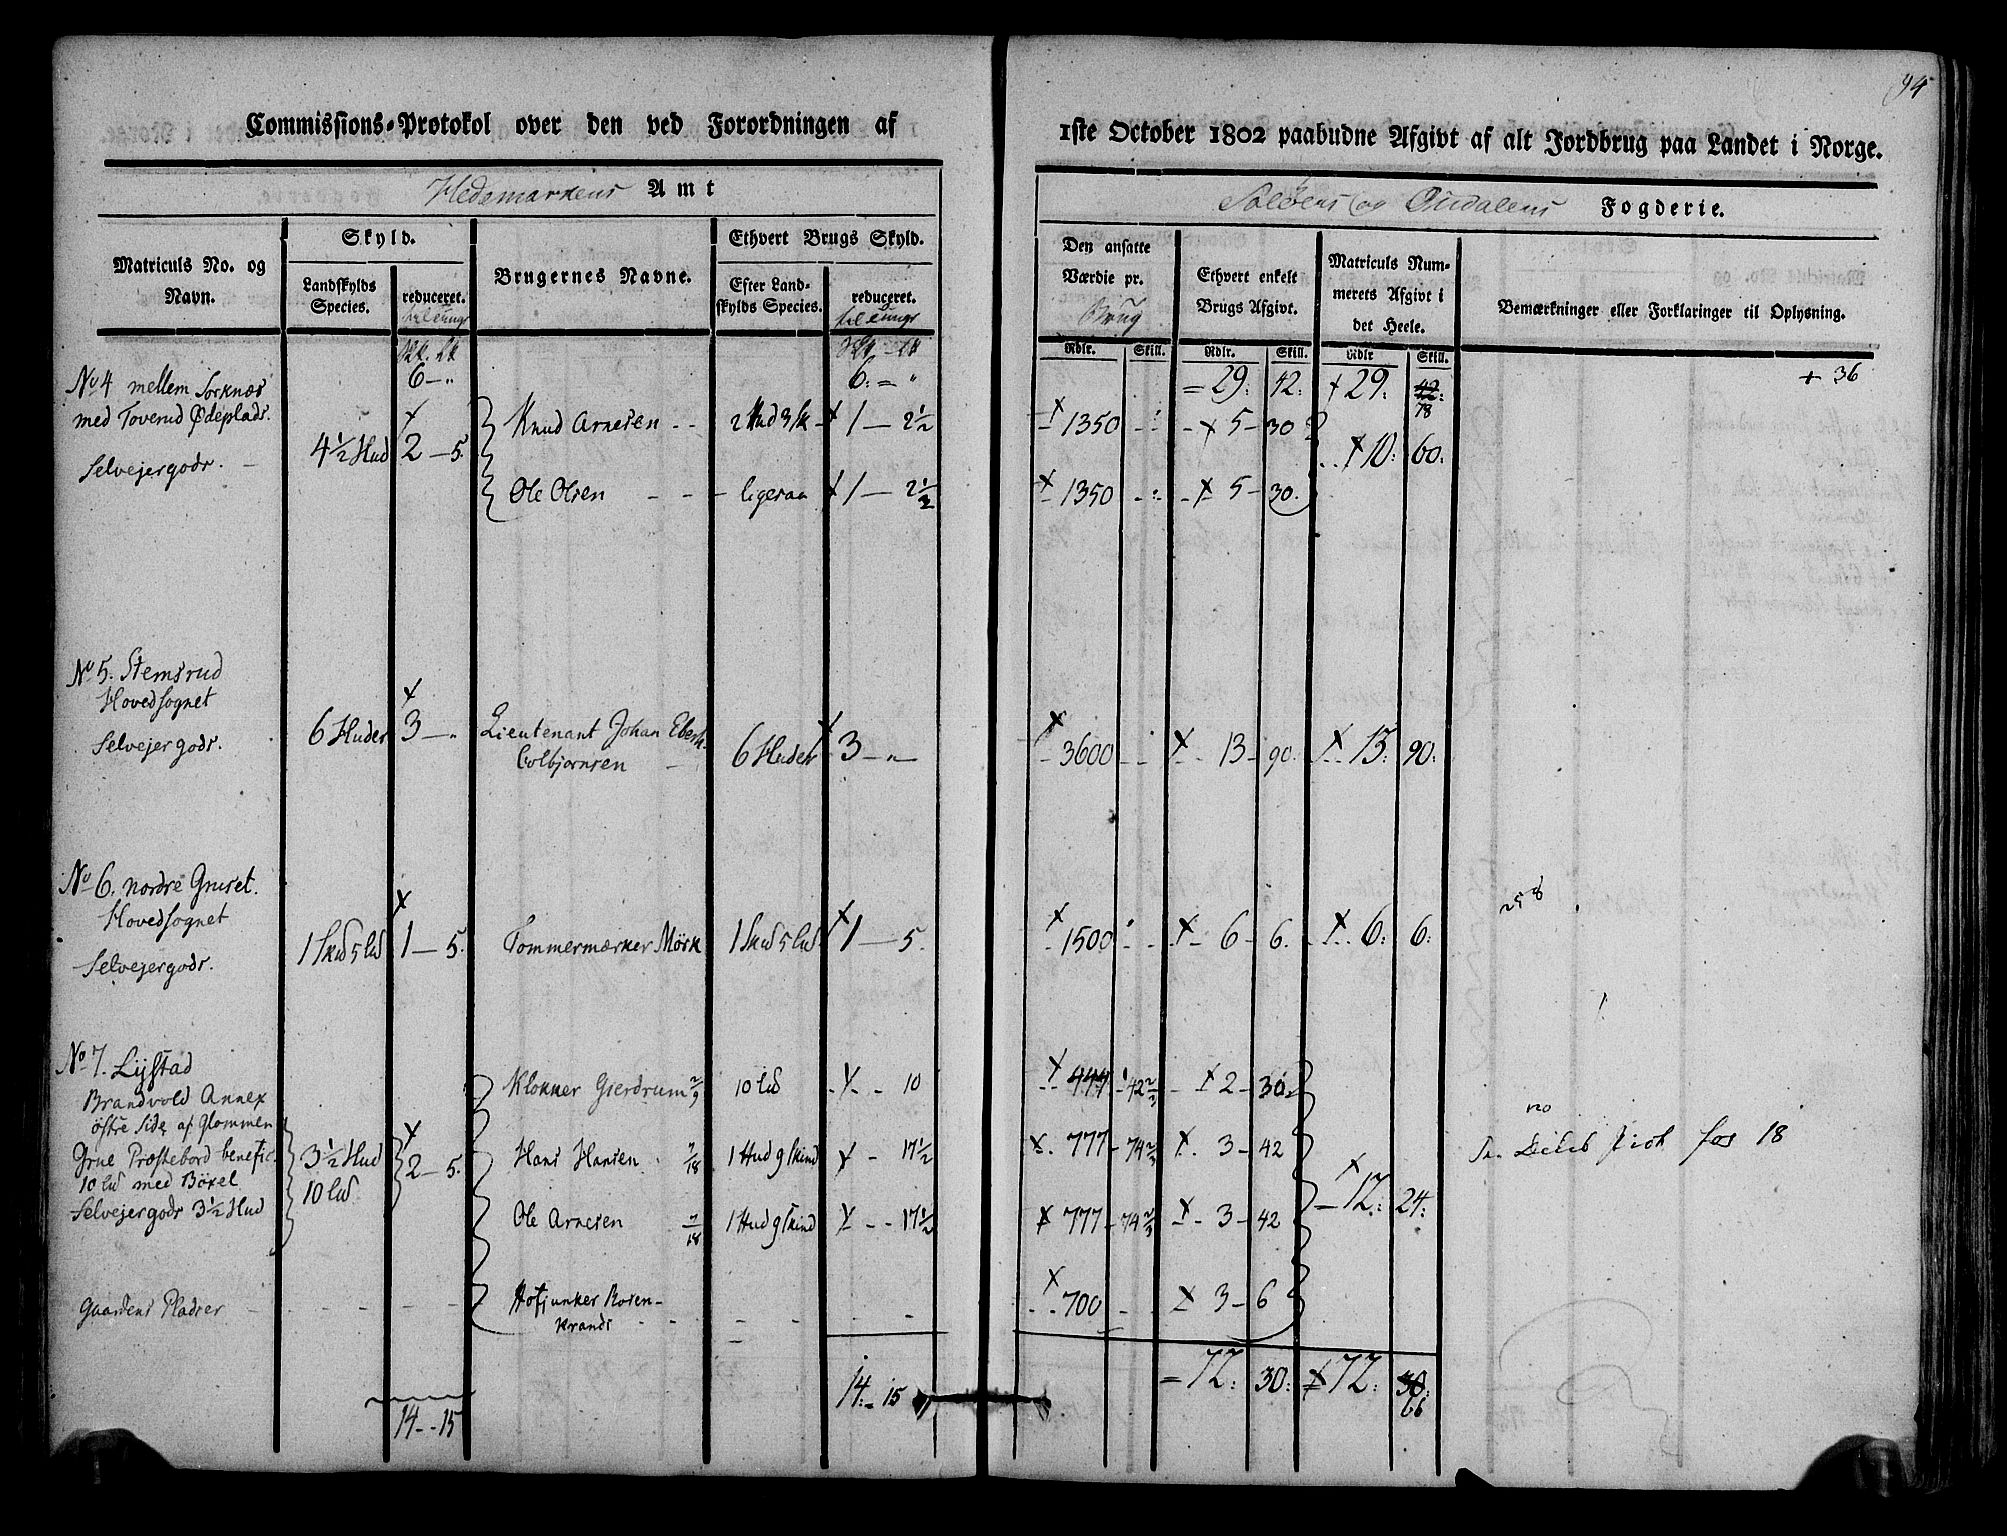 94
Commissions-Protokol over den ved Forordningen af
1ste October 1802 paabudne Afgivt af alt Jordbrug paa Landet i Norge.
Hedemarkens Amt
Soløens og Fogderie.
Matriculs No. og Navn.
Skyld.
Landskylds Species.
reduceret.
Brugernes Navne.
Ethvert Brugs Skyld.
Efter Landskylds Species.
reduceret.
Den ansatte Værdie pr. Brug
Ethvert enkelt Brugs Afgivt.
Matriculs Nummerets Afgivt i det Heele.
Bemærkninger eller Forklaringer til Oplysning.
Rdlr. Skill. Rdlr. Skill. Rdlr Skill.
6 — „ 6: = „ = 29: 42: + 29: 42: 18 + 36
No 4 mellem Sorknæs
med Toverud Ødeplads.
Selvejergods. 4½ Hud 2 — 5.
Knud Arnesen 2 Hud 3 sk 1 — 2½ 1350 5 — 30
10: 60:
Ole Olsen ligesaa 1 — 2½ 1350 5 — 30.
No 5. Stemsrud
Hovedsognet
Selvejergods. 6 Huder 3 — „
Lieutenant Johan Eberh.
Colbjørnsen 6 Huder 3 — „ 3600 13 — 90. 13: 90:
No 6. nordre Gruset.
Hovedsognet
Selvejergods. 1 Skind 5 lud 1 — 5. Tommermærker Mörk 1 — 5. 1500 6 — 6. 6: 6:
258
No 7. Lystad
Brandvold Annex
östre Side af Glommen
Grue Præstebord benefic.
10 lud med Böxel
Selvejergods 3½ Hud
3½ Hud
10 lud
2 — 5.
Klokker Gierdrum 2/9 10 lud 10 444 42⅔ 2 — 30
Hans Hansen 7/18 1 Hud 9 skind 17½ 777 — 74⅔ 3 — 42
no
for 18
Ole Arnesen 7/18 1 Hud 9 skind 17½ 777 — 74⅔ 3 — 42
12: 24:
Gaardens Pladser
Hofjunker Rosenkrands 700 3 — 6
14 — 15 14: — 15 = 72: 30: 72: 30: 66